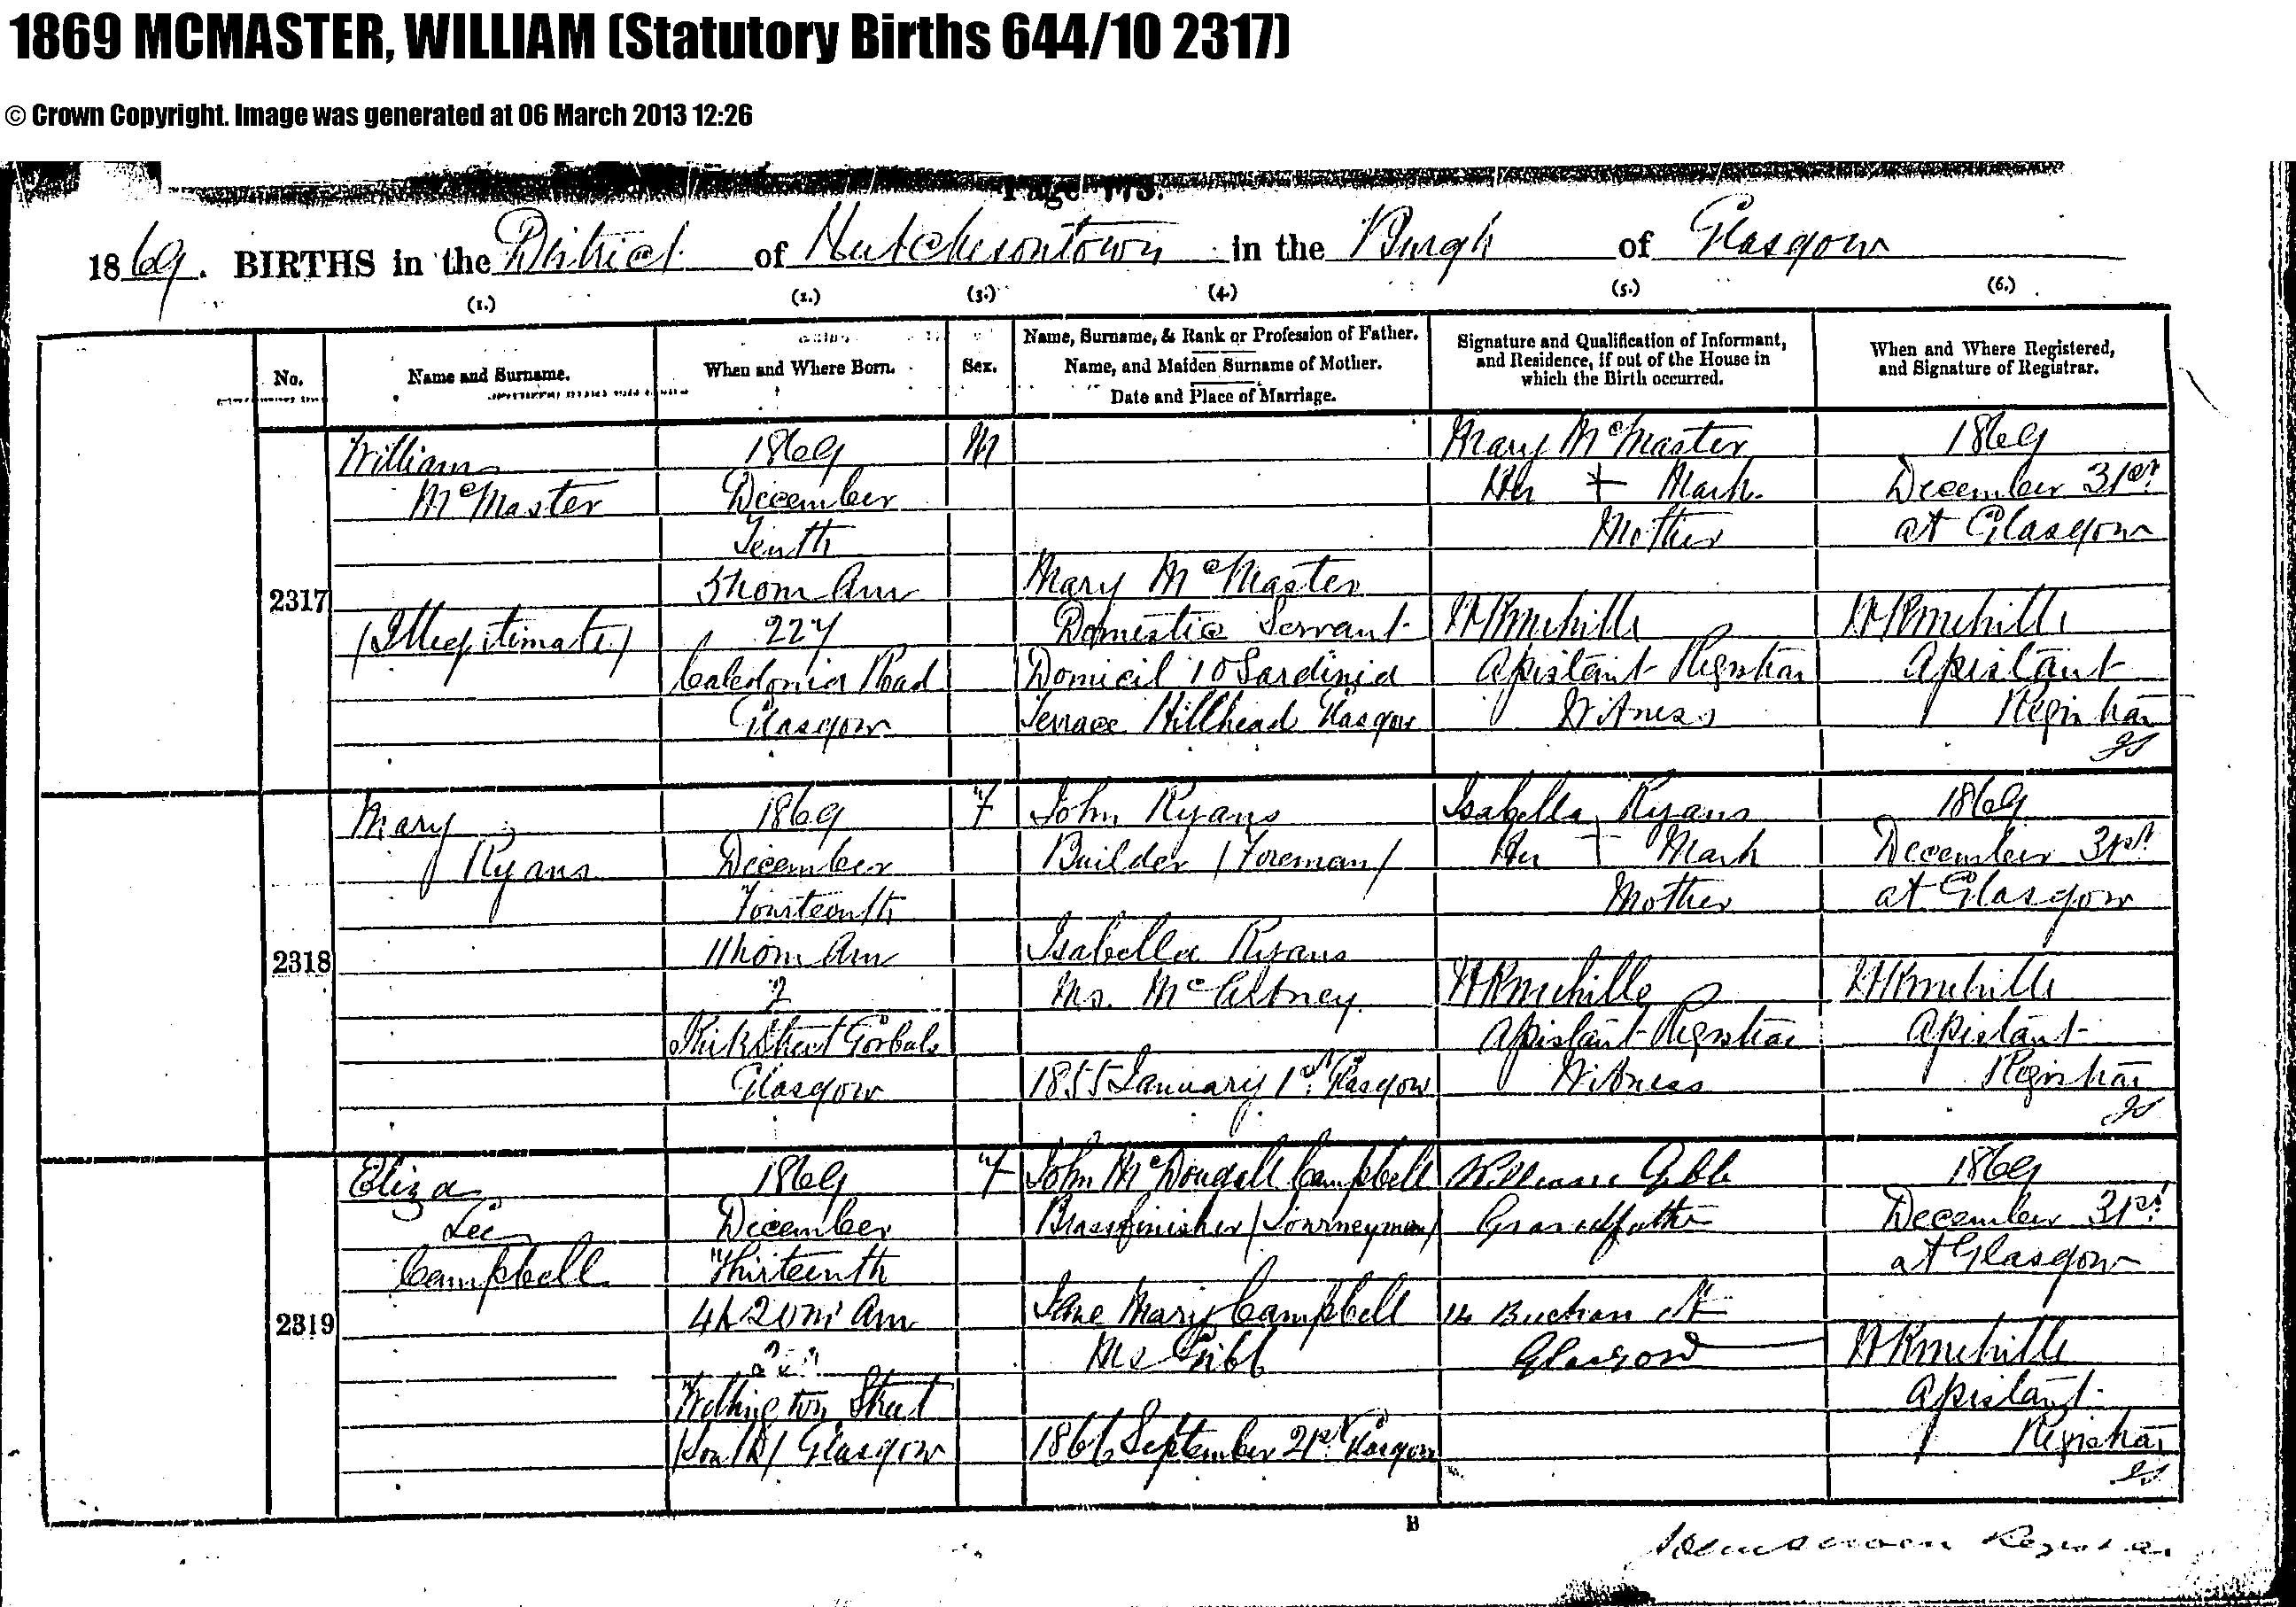 1869 MCMASTER, WILLIAM (Statutory Births 644/10 2317)
© Crown Copyright. Image was generated at 06 March 2013 12:26
Page 773.
1869. BIRTHS in the District of Hutchesontown in the Burgh of Glasgow
(1.) (2.) (3.) (4.) (5.) (6.)
No.
Name and Surname.
When and Where Born.
Sex.
Name, Surname, & Rank or Profession of Father.
Name, and Maiden Surname of Mother.
Date and Place of Marriage.
Signature and Qualification of Informant,
and Residence, if out of the House in
which the Birth occurred.
When and Where Registered,
and Signature of Registrar.
2317
William
McMaster
(Illegitimate)
1869
December
Tenth
5h 0m Am
227
Caledonia Road
Glasgow
M
Mary McMaster
Domestic Servant
Domicil 10 Sardinia
Terrace Hillhead Glasgow
Mary McMaster
Her + Mark
Mother
Assistant Registrar
Witness
1869
December 31st
at Glasgow
Assistant
Registrar
2318
Mary
Ryans
1869
December
Fourteenth
11h 0m Am
2
Kirk Street Gorbals
Glasgow
F
John Ryans
Builder (Foreman)
Isabella Ryans
Ms. McCartney
1855 January 1st Glasgow
Isabella Ryans
Her + Mark
Mother
Assistant Registrar
Witness
1869
December 31st
at Glasgow
Assistant
Registrar
2319
Eliza
Lee
Campbell
1869
December
Thirteenth
4h 20m Am
Wellington Street
Glasgow
F
John McDougall Campbell
Brassfinisher (Journeyman)
Jane Mary Campbell
Ms Gibb
1866 September 21st Glasgow
William Gibb
Grandfather
14 Buchan St
Glasgow
1869
December 31st
at Glasgow
Assistant
Registrar
B
Registrar